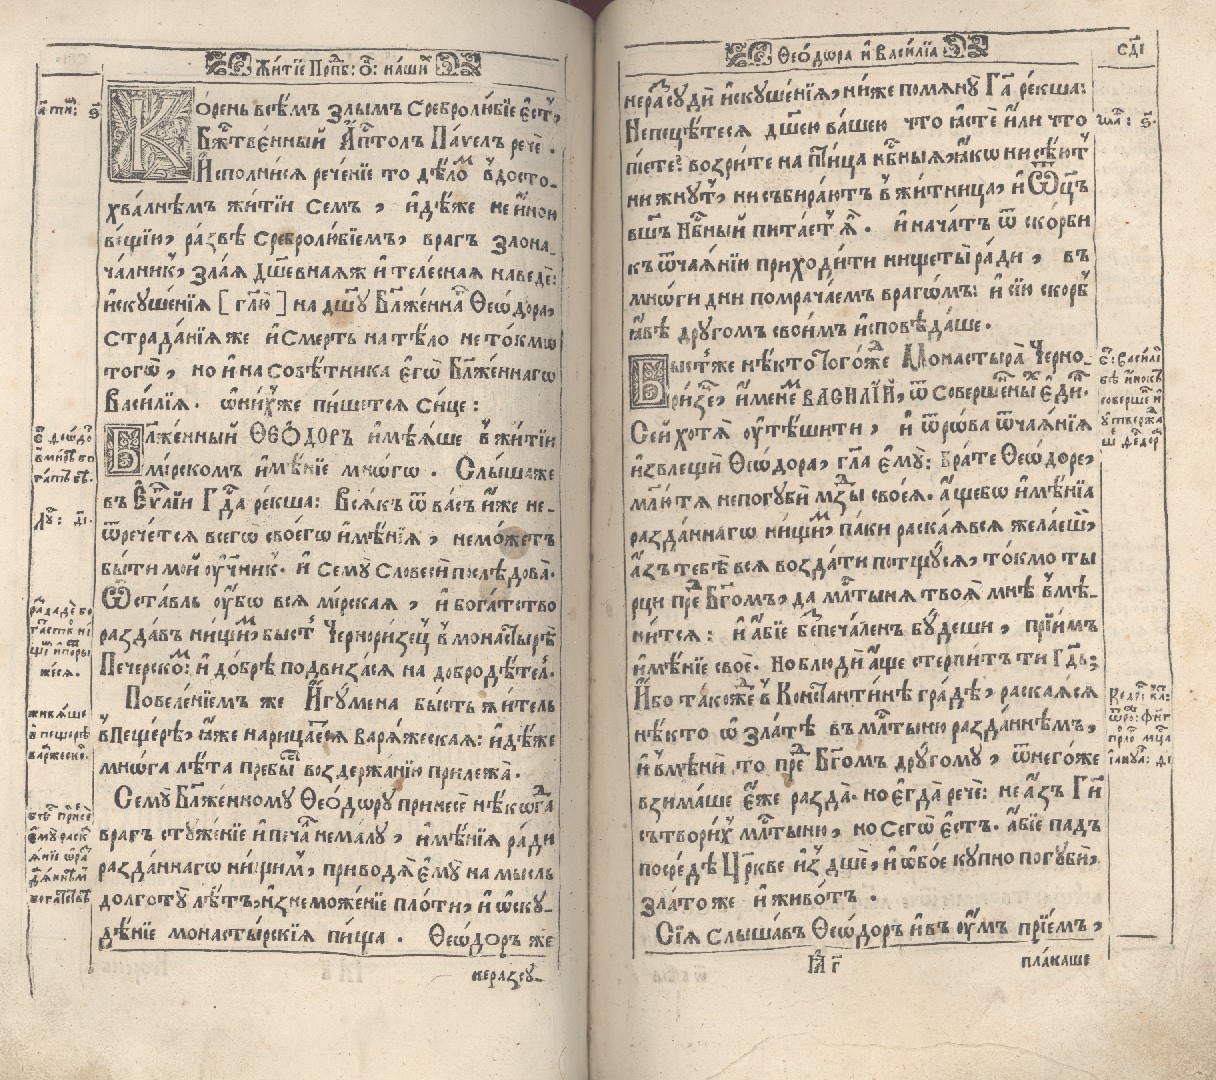 Житїе Прпⷣб: ѿ: наши
Корень всѣмъ злымъ Сребролюбїе є҆стъ,
Бжⷭ҇твенный А҆пⷭ҇толъ Паѵелъ рече .
И҆сполнися реченїе то дѣло в̾досто-
хвалнѣмъ житїи семъ , и҆дѣже не и҆нои
вещїи, развѣ Сребролюбїемъ, врагъ злона-
чалникъ, злая дш҃евнаяж и҆ телесная наведе:
и҆скушенїя [ гл҃ю ] на дш҃у Блаженна Ѳеѡдора,
страданїя же и҆ смерть на тѣло не токмѡ
тогѡ , но и҆ на совѣтника є҆гѡ Блаженнагѡ
Василїя . ѡ҆нихже пишется сице :
Блаженный ѲЕОДОРЪ и҆мѣяше в̾ житїи
мирскомъ и҆мѣнїе многѡ . Слышаже
въ Еѵⷢ҇лїи Гдⷭ҇а рекша: Всякъ ѿ васъ и҆же не-
ѿречется всегѡ своегѡ и҆мѣнїя , неможетъ
быти мой оу҆чн҃икъ . и҆ сему словеси послѣдова .
Ѿставль оу҆бѡ вся мирская , и҆ богатство
раздавъ нищимъ, бысть Черноризецъ в̾ монастырѣ
Печерскомъ: и҆ добрѣ подвизася на добродѣтел .
Повелѣнїемъ же И҆гумена бысть житель
в̾ пещерѣ, ꙗ҆же нарицается варяжеская: и҆дѣже
многа лѣта пребысть воздержанїю прилежа .
Сему Блаженному Ѳеѡдору принесе нѣкогда
врагъ стуженїе и҆ печаль немалу , и҆мѣнїя ради
разданнагѡ нищим , приводя є҆му на мысль
долготу лѣтъ, и҆знеможенїе плоти, и҆ ѡ҆ску-
дѣнїе монастырскїя пища . Ѳеѡдоръ же
неразсу-
в̾ пещерѣ
Ѳеѡдора и҆ Василїа
неразсуди и҆скушенїя, ниже помяну Гдⷭ҇а рекша:
Непецѣтеся дш҃ею вашею что ꙗ҆сте и҆ли что
пїете: возрите на птица нбⷭ҇ныя, ꙗ҆кѡ ни сѣютъ
ни жнутъ, ни събираютъ в̾ житница, и҆ Ѿц҃ъ
вш҃ъ Нбⷭ҇ный питаетъ я҆ . и҆ начатъ ѿ скорби
къ ѿчаянїю приходити нищеты ради , въ
многи дни помрачаем врагомъ: и҆ сїю скорбь
ꙗ҆вѣ другомъ своимъ и҆сповѣдаше .
Бысть же нѣкто тогожде Монастыра Черно-
ризец, и҆менем ВАСИЛЇЙ, ѿ совершенных є҆дин .
Сей хотя оу҆тѣшити , и҆ ѿ рова ѿчаянїя
и҆звлещи Ѳеѡдора, гл҃а є҆му: Брате Ѳеѡдоре,
молютися непогуби мзды своея . а҆щебо и҆мѣнїя
разданнагѡ нищим, паки раскаявся желаеши,
а҆зъ тебѣ вся воздати потщуся, токмо ты
рци пред Бг҃омъ, да млⷭ҇тыня твоя мнѣ в̾мѣ-
нится : и҆ а҆бїе безпечаленъ будеши , прїимъ
и҆мѣнїе свое . но блюди а҆ще стерпитъ ти Гдⷭ҇ь;
И҆бо такожде в̾ Константинѣ градѣ, раскаяся
нѣкто ѡ҆ златѣ въ млⷭ҇тыню разданнѣмъ,
и҆ в̾мѣни то пред Бг҃омъ другому , ѿ негоже
взимаше є҆же разда . но є҆гда рече: не а҆зъ Гдⷭ҇и
сътворих млⷭ҇тыню, но сего є҆стъ . а҆бїе падъ
посредѣ Цр҃кве и҆здше, и҆ ѡ҆бое купно погуби,
злато же и҆ животъ .
Сїя слышавъ Ѳеѡдоръ и҆ въ оу҆мъ прїемъ ,
плакаше